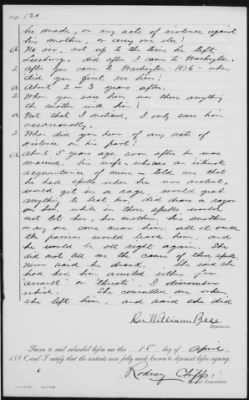 be made, or any acts of violence against
his mother, or any one else?
A No sir, not up to the time he left
Leesburg. Did after I came to Washington.
2 After you came to Washington 1876 when
did you first see him?
A About 2 or 3 years after.
2 When you saw him was there anything
the matter with him?
A Not that I noticed, I only saw him
occasionally.
2 When did you hear of any acts of
violence on his part?
A About 5 years ago, soon after he was
married. His wife who was an intimate
acquaintance of mine – told me that
he had spells when he was
would get in a rage, would grab
anything to beat her, did draw a razor
on her, while in these spells would
not let her, his mother, her mother
or any one come near him until once
the passion would leave him, and
he would be all right again. She
did not tell me the cause of these spells
Never said he drank. She said she
had had him arrested either for
"assault" or "threats" I disremember
which. She consulted me when
she left him, and said she did
Rev William
Deponent.
Sworn to and subscribed before me this 15 day of April
188 , and I certify that the contents were fully made known to deponent before signing.
Rodney